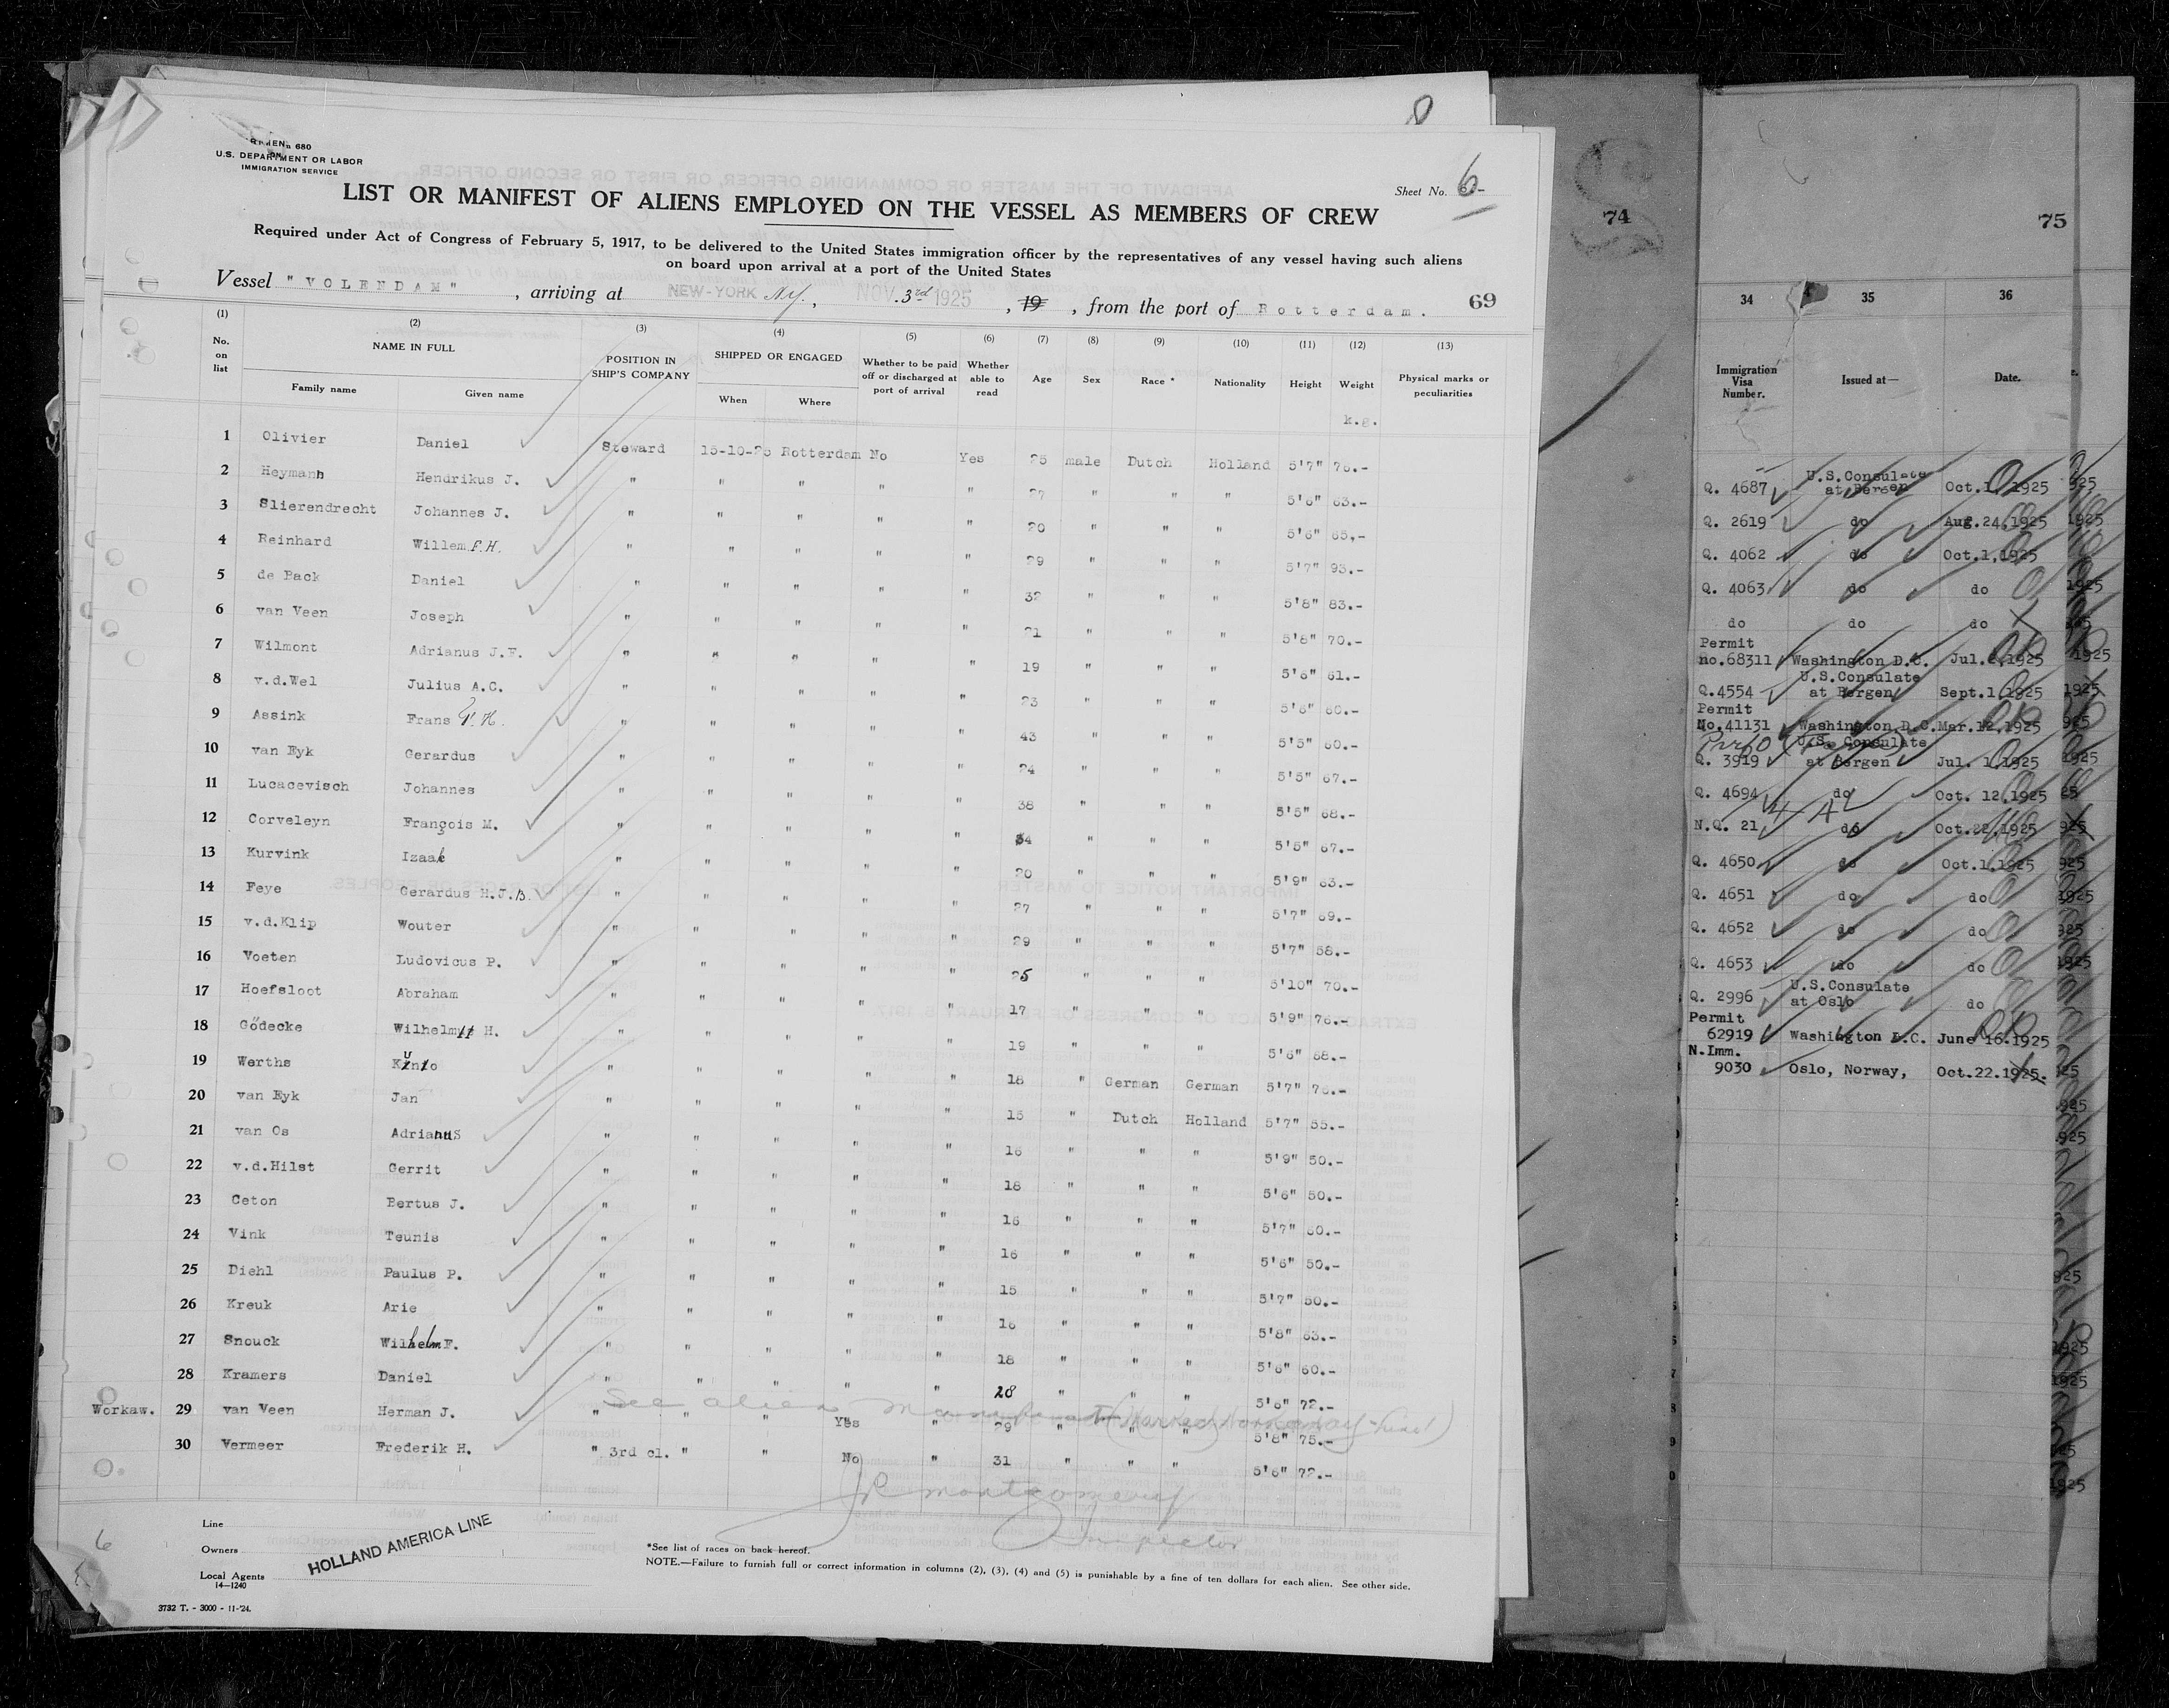 U.S. DEPARTMENT OR LABOR
IMMIGRATION SERVICE
Sheet No. 6
LIST OR MANIFEST OF ALIENS EMPLOYED ON THE VESSEL AS MEMBERS OF CREW
Required under Act of Congress of February 5, 1917, to be delivered to the United States immigration officer by the representatives of any vessel having such aliens
on board upon arrival at a port of the United States
Vessel "VOLENDAM", arriving at NEW-YORK N.Y., NOV. 3rd 1925, 19 , from the port of Rotterdam. 69
(1) (2) (3) (4) (5) (6) (7) (8) (9) (10) (11) (12) (13)
No. on list NAME IN FULL Family name Given name POSITION IN SHIP'S COMPANY SHIPPED OR ENGAGED When Where Whether to be paid off or discharged at port of arrival Whether able to read Age Sex Race * Nationality Height Weight Physical marks or peculiarities
k.g.
1 Olivier Daniel Steward 15-10-25 Rotterdam No Yes 25 male Dutch Holland 5'7" 76.-
2 Heymann Hendrikus J. " " " " " 27 " " " 5'6" 63.-
3 Slierendrecht Johannes J. " " " " " 20 " " " 5'6" 65,-
4 Reinhard Willem F.H. " " " " " 29 " " " 5'7" 93.-
5 de Back Daniel " " " " " 32 " " " 5'8" 83.-
6 van Veen Joseph " " " " " 21 " " " 5'8" 70.-
7 Wilmont Adrianus J.F. " " " " " 19 " " " 5'6" 61.-
8 v.d.Wel Julius A.C. " " " " " 23 " " " 5'6" 60.-
9 Assink Frans " " " " " 43 " " " 5'5" 60.-
10 van Eyk Gerardus " " " " " 24 " " " 5'5" 67.-
11 Lucacevisch Johannes " " " " " 38 " " " 5'5" 68.-
12 Corveleyn François M. " " " " " 34 " " " 5'5" 67.-
13 Kurvink Izaak " " " " " 20 " " " 5'9" 63.-
14 Feye Gerardus H.J.B. " " " " " 27 " " " 5'7" 69.-
15 v.d.Klip Wouter " " " " " 29 " " " 5'7" 58.-
16 Voeten Ludovicus P. " " " " " 25 " " " 5'10" 70.-
17 Hoefsloot Abraham " " " " " 17 " " " 5'9" 76.-
18 Gödecke Wilhelm H. " " " " " 19 " " " 5'6" 68.-
19 Werths " " " " " 18 " German German 5'7" 76.-
20 van Eyk Jan " " " " " 15 " Dutch Holland 5'7" 55.-
21 van Os Adrianus " " " " " 16 " " " 5'9" 50.-
22 v.d.Hilst Gerrit " " " " " 18 " " " 5'6" 50.-
23 Ceton Bertus J. " " " " " 16 " " " 5'7" 60.-
24 Vink Teunis " " " " " 16 " " " 5'6" 50.-
25 Diehl Paulus P. " " " " " 15 " " " 5'7" 50.-
26 Kreuk Arie " " " " " 16 " " " 5'8" 63.-
27 Snouck Wilhelm F. " " " " " 18 " " " 5'6" 60.-
28 Kramers Daniel " " " " " 28 " " " 5'6" 72.-
See alien
Workaw. 29 van Veen Herman J. " " " Yes " 29 " " " 5'8" 75.-
30 Vermeer Frederik H. " 3rd cl. " " No " 31 " " " 5'6" 72.-
JR Montgomery
Inspector
Line
Owners
Local Agents
HOLLAND AMERICA LINE
14—1240
*See list of races on back hereof.
NOTE.—Failure to furnish full or correct information in columns (2), (3), (4) and (5) is punishable by a fine of ten dollars for each alien. See other side.
3732 T. - 3000 - 11-'24.
6
8
74
75
34 35 36
Immigration Visa Number. Issued at— Date.
Q. 4687 U.S.Consulate at Bergen Oct.1, 1925
Q. 2619 do Aug.24,1925
Q. 4062 do Oct.1,1925
Q. 4063 do do
do do do
Permit
no.68311 Washington D.C. Jul. 1925
Q.4554 U.S.Consulate at Bergen Sept.1,1925
Permit
No.41131 Washington D.C. Mar.12,1925
Q. 3919 U.S. Consulate at Bergen Jul. 1,1925
Q. 4694 do Oct. 12,1925
N.Q. 21 do Oct.22,1925
Q. 4650 do Oct.1,1925
Q. 4651 do do
Q. 4652 do do
Q. 4653 do do
Q. 2996 U.S.Consulate at Oslo do
Permit
62919 Washington D.C. June 16.1925
N.Imm.
9030 Oslo, Norway, Oct.22.1925.